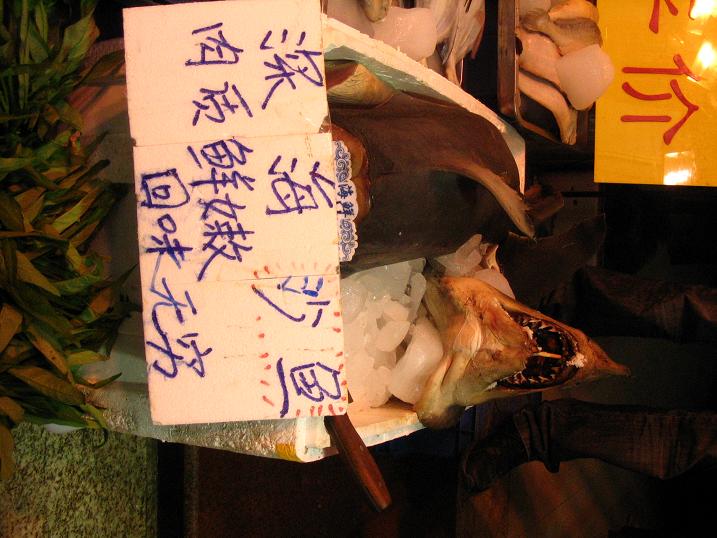 深海沙鱼
肉质鲜嫩
回味无穷
海鲜
价